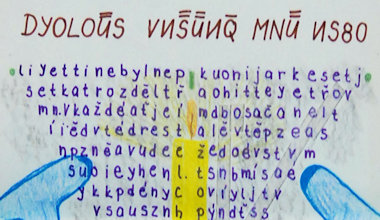 DYOLOŪS VNS̄ŪNQ̄ MNŪ NS80
liyettinebylnep kuonijarkesetj
setkatrozděltř aohitteyetřov
mn.vkaždéatjei mdbosačanelt
líědvtedrest alevtěpzeas
npzněavudec žedoevstvm
subieyhenl.tsnbmísae
ykkpdényc ovíyljtv
vsausznh pýndtěs